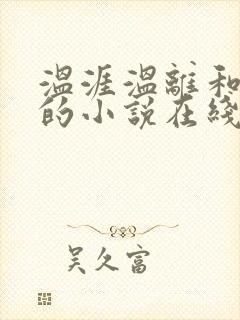 温涯温離和
的小说在綫
吴久富